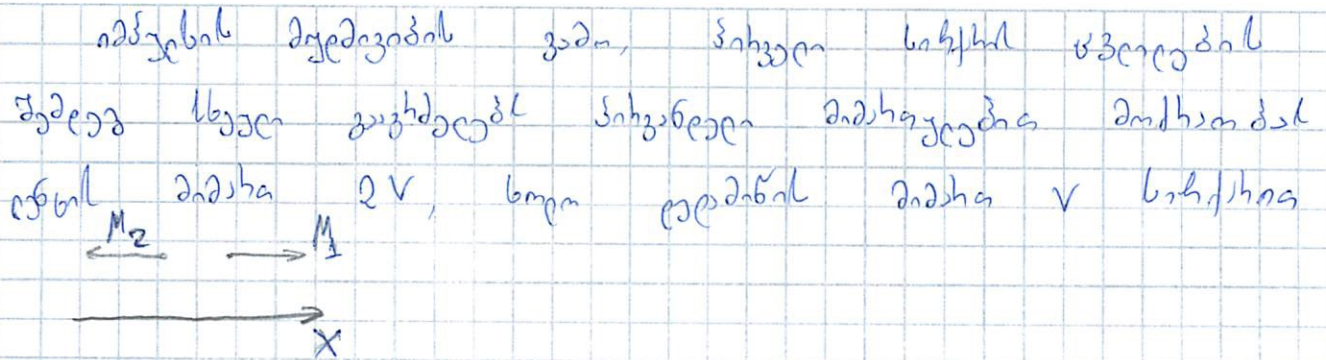 იმპულსის მუდმივობის გამო, პირველი სიჩქრის ცვლილების
შემდეგ სხეული გააგრძელებს პირვანდელი მიმართულებით მოძრაობას
ლენტის მიმართ 2V, ხოლო დედამიწის მიმართ V სიჩქარით
M₂ M₁
X